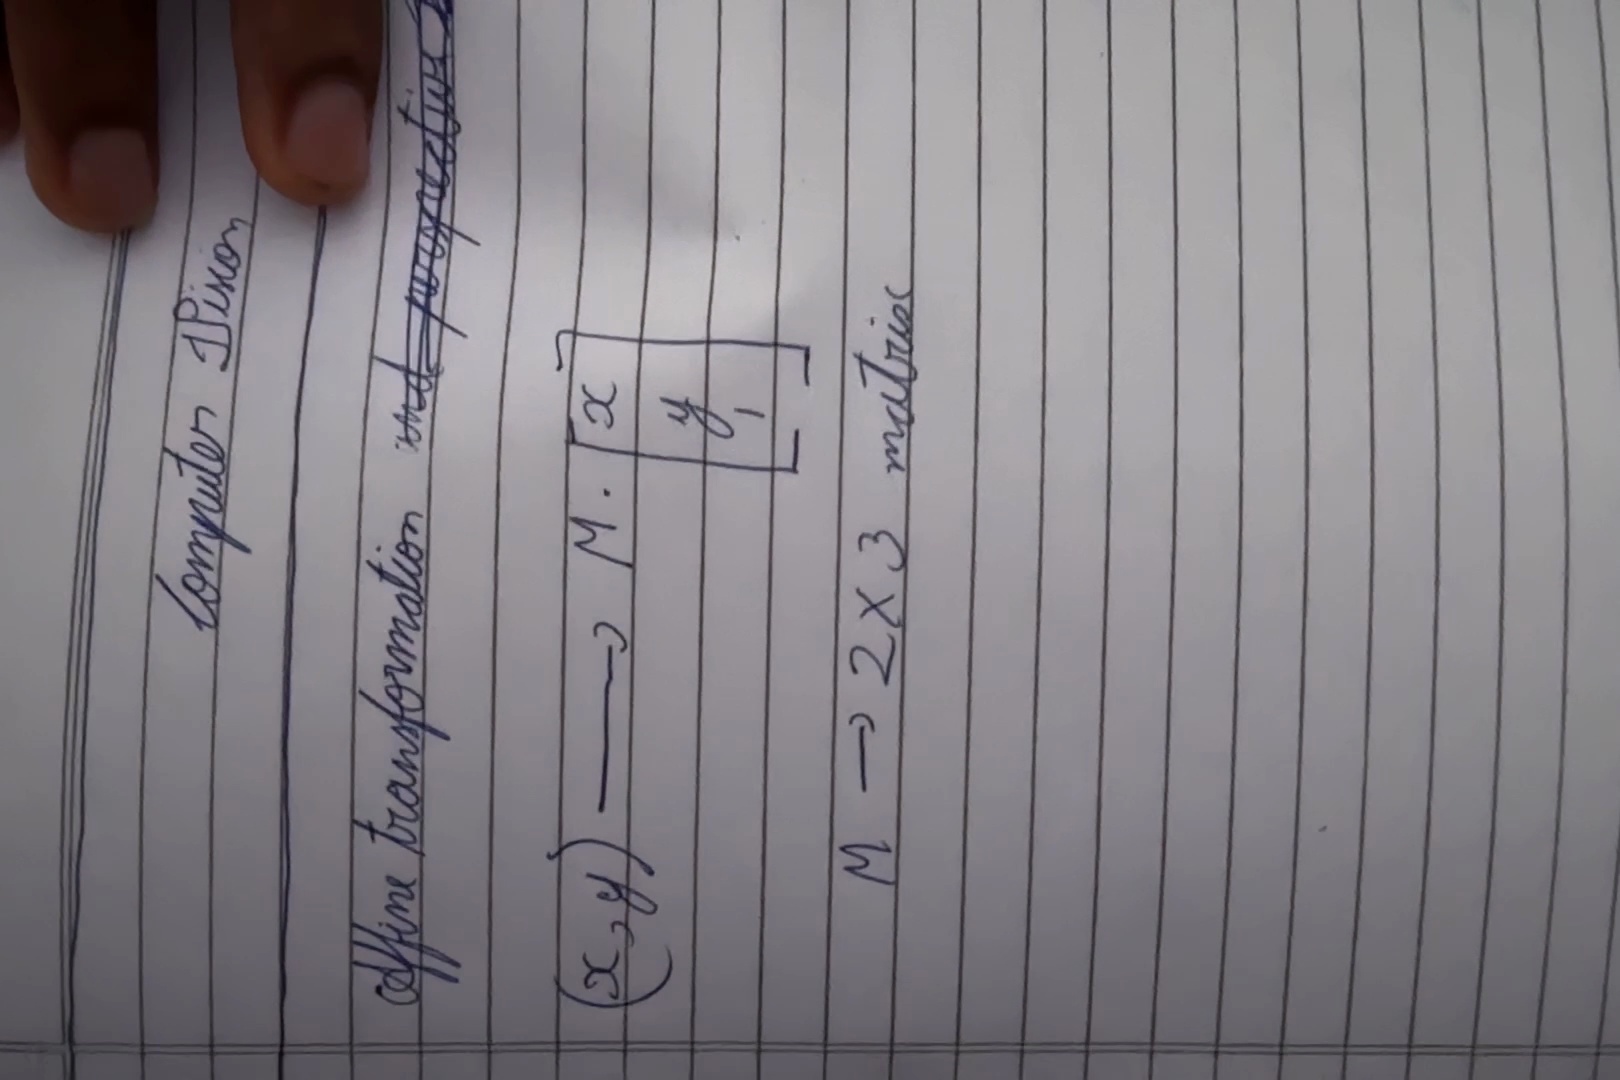 Computer Vision
Affine transformation and perspective
(x, y) → M . [x
y
1]
M → 2 × 3 matrix